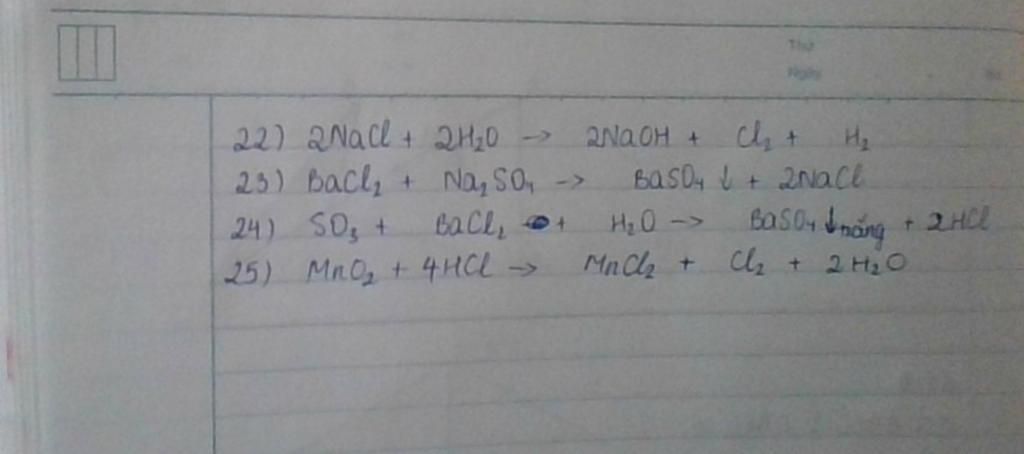 Thứ
Ngày
22) 2NaCl + 2H₂O → 2NaOH + Cl₂ + H₂
23) BaCl₂ + Na₂SO₄ → BaSO₄ ↓ + 2NaCl
24) SO₃ + BaCl₂ + H₂O → BaSO₄ ↓ trắng + 2HCl
25) MnO₂ + 4HCl → MnCl₂ + Cl₂ + 2H₂O